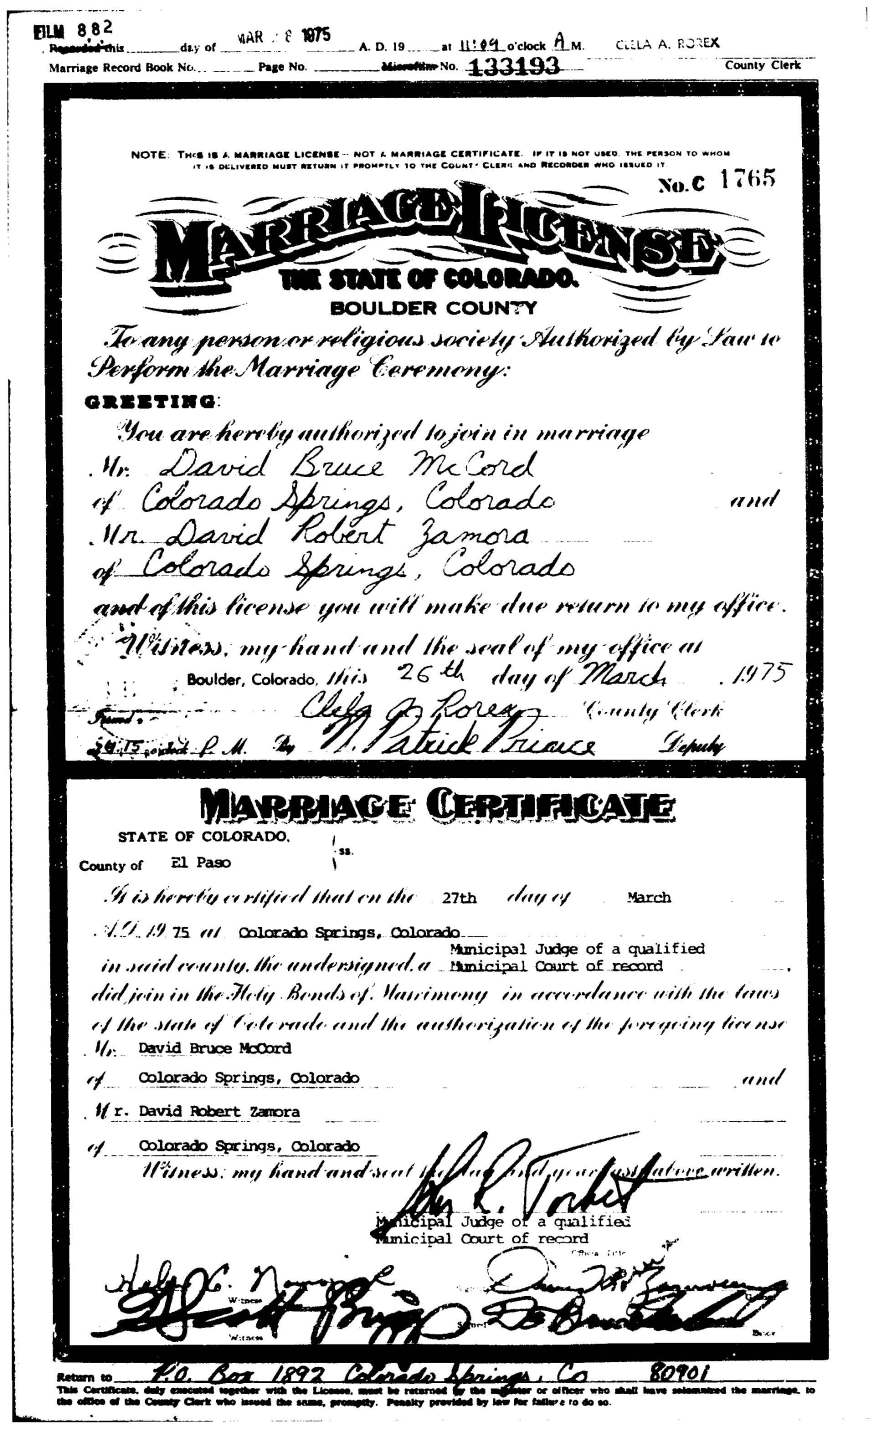 FILM 882
Recorded this day of MAR 8 1975 A. D. 19 at 11:09 o'clock A M. CLELA A. ROREX
Marriage Record Book No. Page No. Microfilm No. 133193 County Clerk
NOTE: THIS IS A MARRIAGE LICENSE - NOT A MARRIAGE CERTIFICATE. IF IT IS NOT USED, THE PERSON TO WHOM
IT IS DELIVERED MUST RETURN IT PROMPTLY TO THE COUNTY CLERK AND RECORDER WHO ISSUED IT
No. C 1765
MARRIAGE LICENSE
THE STATE OF COLORADO.
BOULDER COUNTY
To any person or religious society Authorized by Law to
Perform the Marriage Ceremony:
GREETING:
You are hereby authorized to join in marriage
Mr. David Bruce McCord
of Colorado Springs, Colorado and
Mr. David Robert Zamora
of Colorado Springs, Colorado
and of this license you will make due return to my office.
Witness, my hand and the seal of my office at
Boulder, Colorado, this 26th day of March, 1975
Clela A Rorex County Clerk
Issued
at 15 o'clock P. M. By N. Patrick Prince Deputy
MARRIAGE CERTIFICATE
STATE OF COLORADO,
ss.
County of El Paso
It is hereby certified that on the 27th day of March
A.D. 19 75 at Colorado Springs, Colorado
Municipal Judge of a qualified
in said county, the undersigned, a Municipal Court of record,
did join in the Holy Bonds of Matrimony in accordance with the laws
of the state of Colorado and the authorization of the foregoing license
Mr. David Bruce McCord
of Colorado Springs, Colorado and
Mr. David Robert Zamora
of Colorado Springs, Colorado
Witness, my hand and seal the day and year last above written.
John R. Torbet
Municipal Judge of a qualified
Municipal Court of record
Official Title
Witness
Signed
Witness
Return to P.O. Box 1892 Colorado Springs, Co 80901
This Certificate, duly executed together with the License, must be returned by the minister or officer who shall have solemnized the marriage, to
the office of the County Clerk who issued the same, promptly. Penalty provided by law for failure to do so.